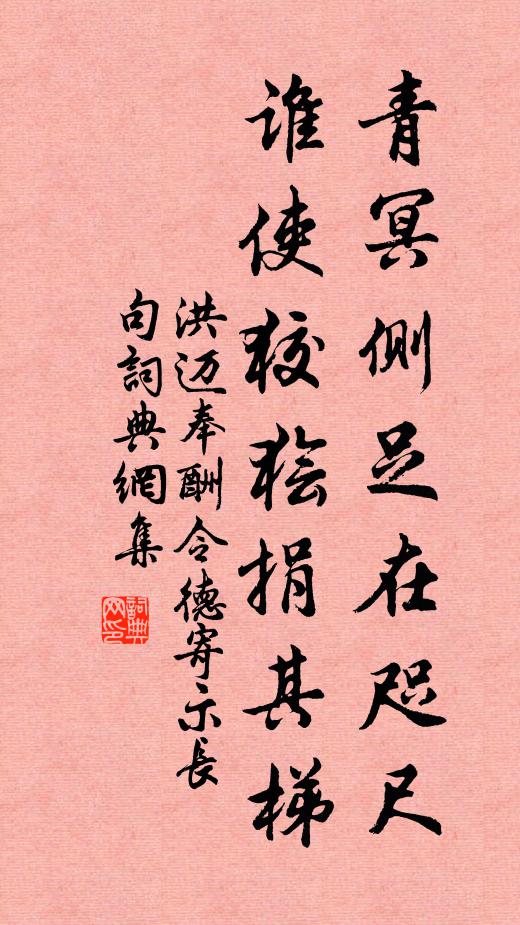 青冥侧足在咫尺
谁使狡狯捐其梯
洪迈奉酬令德寄示长
句詞典網集
詞典
网印